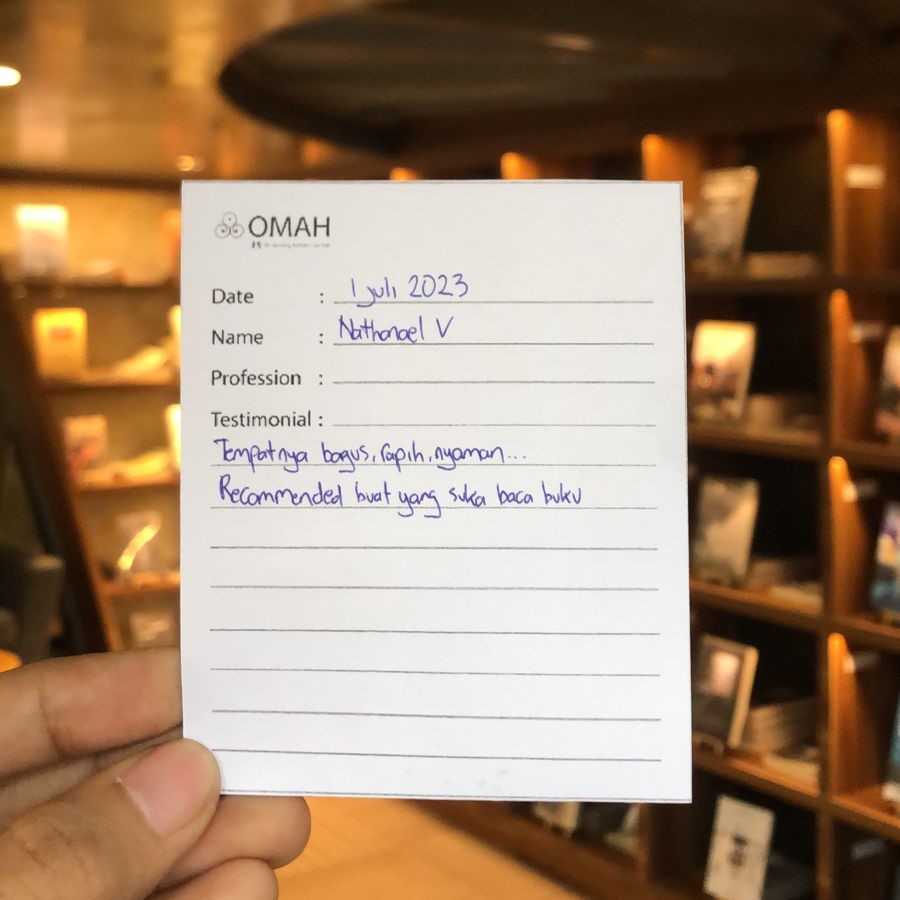 OMAH
Date : 1 juli 2023
Name : Nathanael V
Profession :
Testimonial :
Tempatnya bagus, rapih, nyaman...
Recommended buat yang suka baca buku